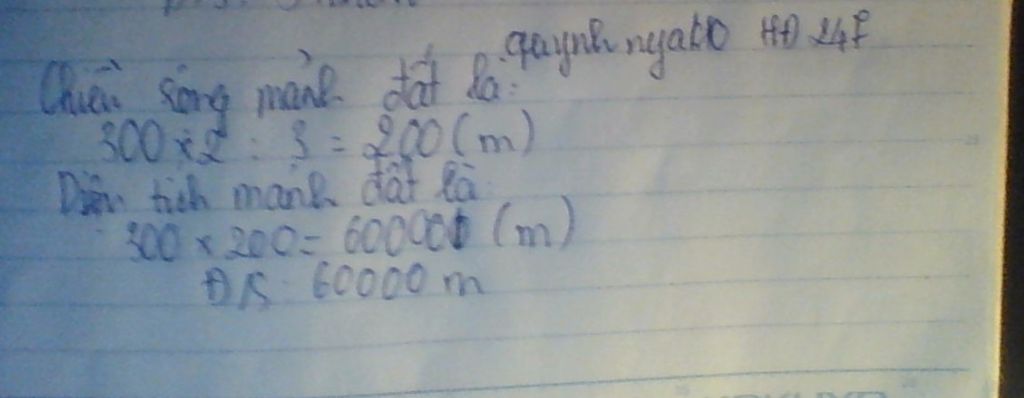 quynh nga HĐ 247
Chiều rộng mảnh đất là:
300 x 2 : 3 = 200 (m)
Diện tích mảnh đất là
300 x 200 = 60000 (m)
Đ/S: 60000 m